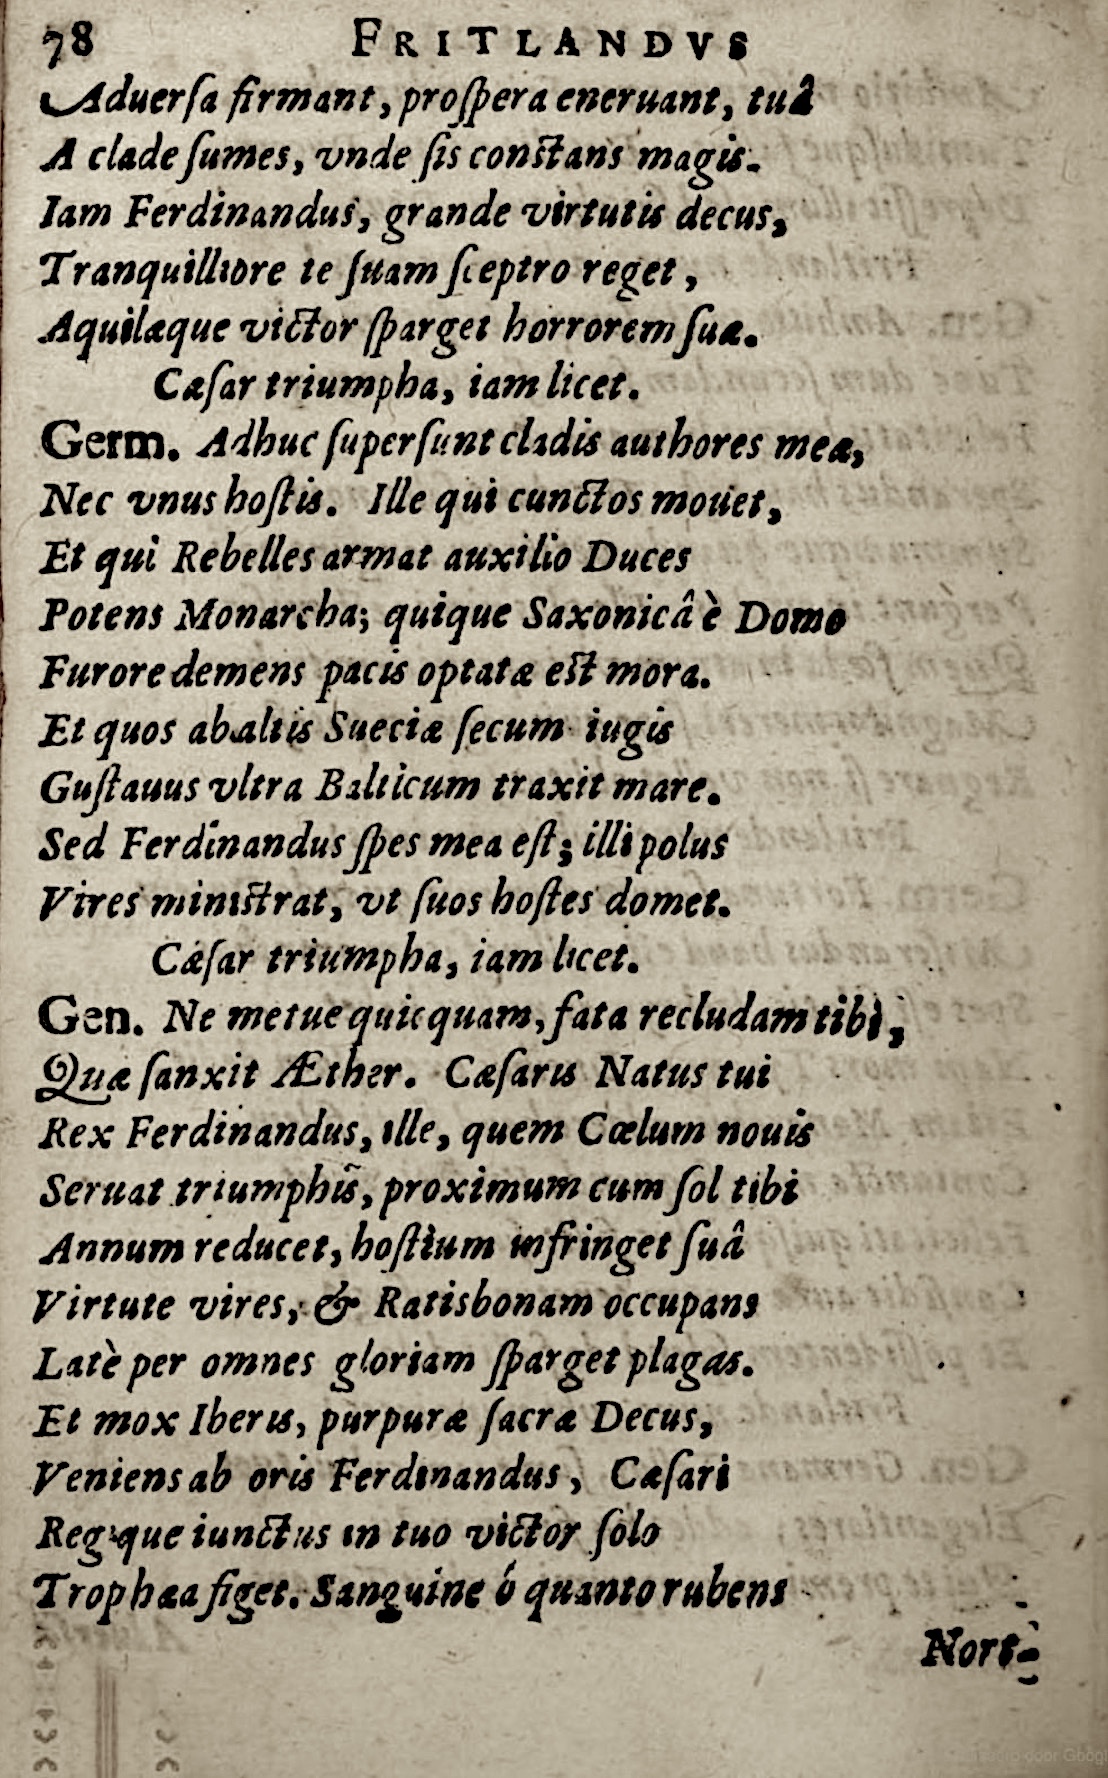 78 FRITLANDVS
Aduerſa firmant, proſpera eneruant, tuâ
A clade ſumes, vnde ſis constans magis.
Iam Ferdinandus, grande virtutis decus,
Tranquilliore te ſuam ſceptro reget,
Aquilæque victor ſparget horrorem ſuæ.
Cæſar triumpha, iam licet.
Germ. Adhuc ſuperſunt cladis authores meæ,
Nec vnus hoſtis. Ille qui cunctos mouet,
Et qui Rebelles armat auxilio Duces
Potens Monarcha; quique Saxonicâ è Domo
Furore demens pacis optatæ est mora.
Et quos ab altis Sueciæ ſecum iugis
Guſtauus vltra Balticum traxit mare.
Sed Ferdinandus ſpes mea eſt; illi polus
Vires ministrat, vt ſuos hoſtes domet.
Cæſar triumpha, iam licet.
Gen. Ne metue quicquam, fata recludam tibi,
Quæ ſanxit Æther. Cæſaris Natus tui
Rex Ferdinandus, ille, quem Cœlum nouis
Seruat triumphis, proximum cum ſol tibi
Annum reducet, hoſtium infringet ſuâ
Virtute vires, & Ratisbonam occupans
Latè per omnes gloriam ſparget plagas.
Et mox Iberis, purpuræ ſacræ Decus,
Veniens ab oris Ferdinandus, Cæſari
Regique iunctus in tuo victor ſolo
Trophæa figet. Sanguine ó quanto rubens
Nort-